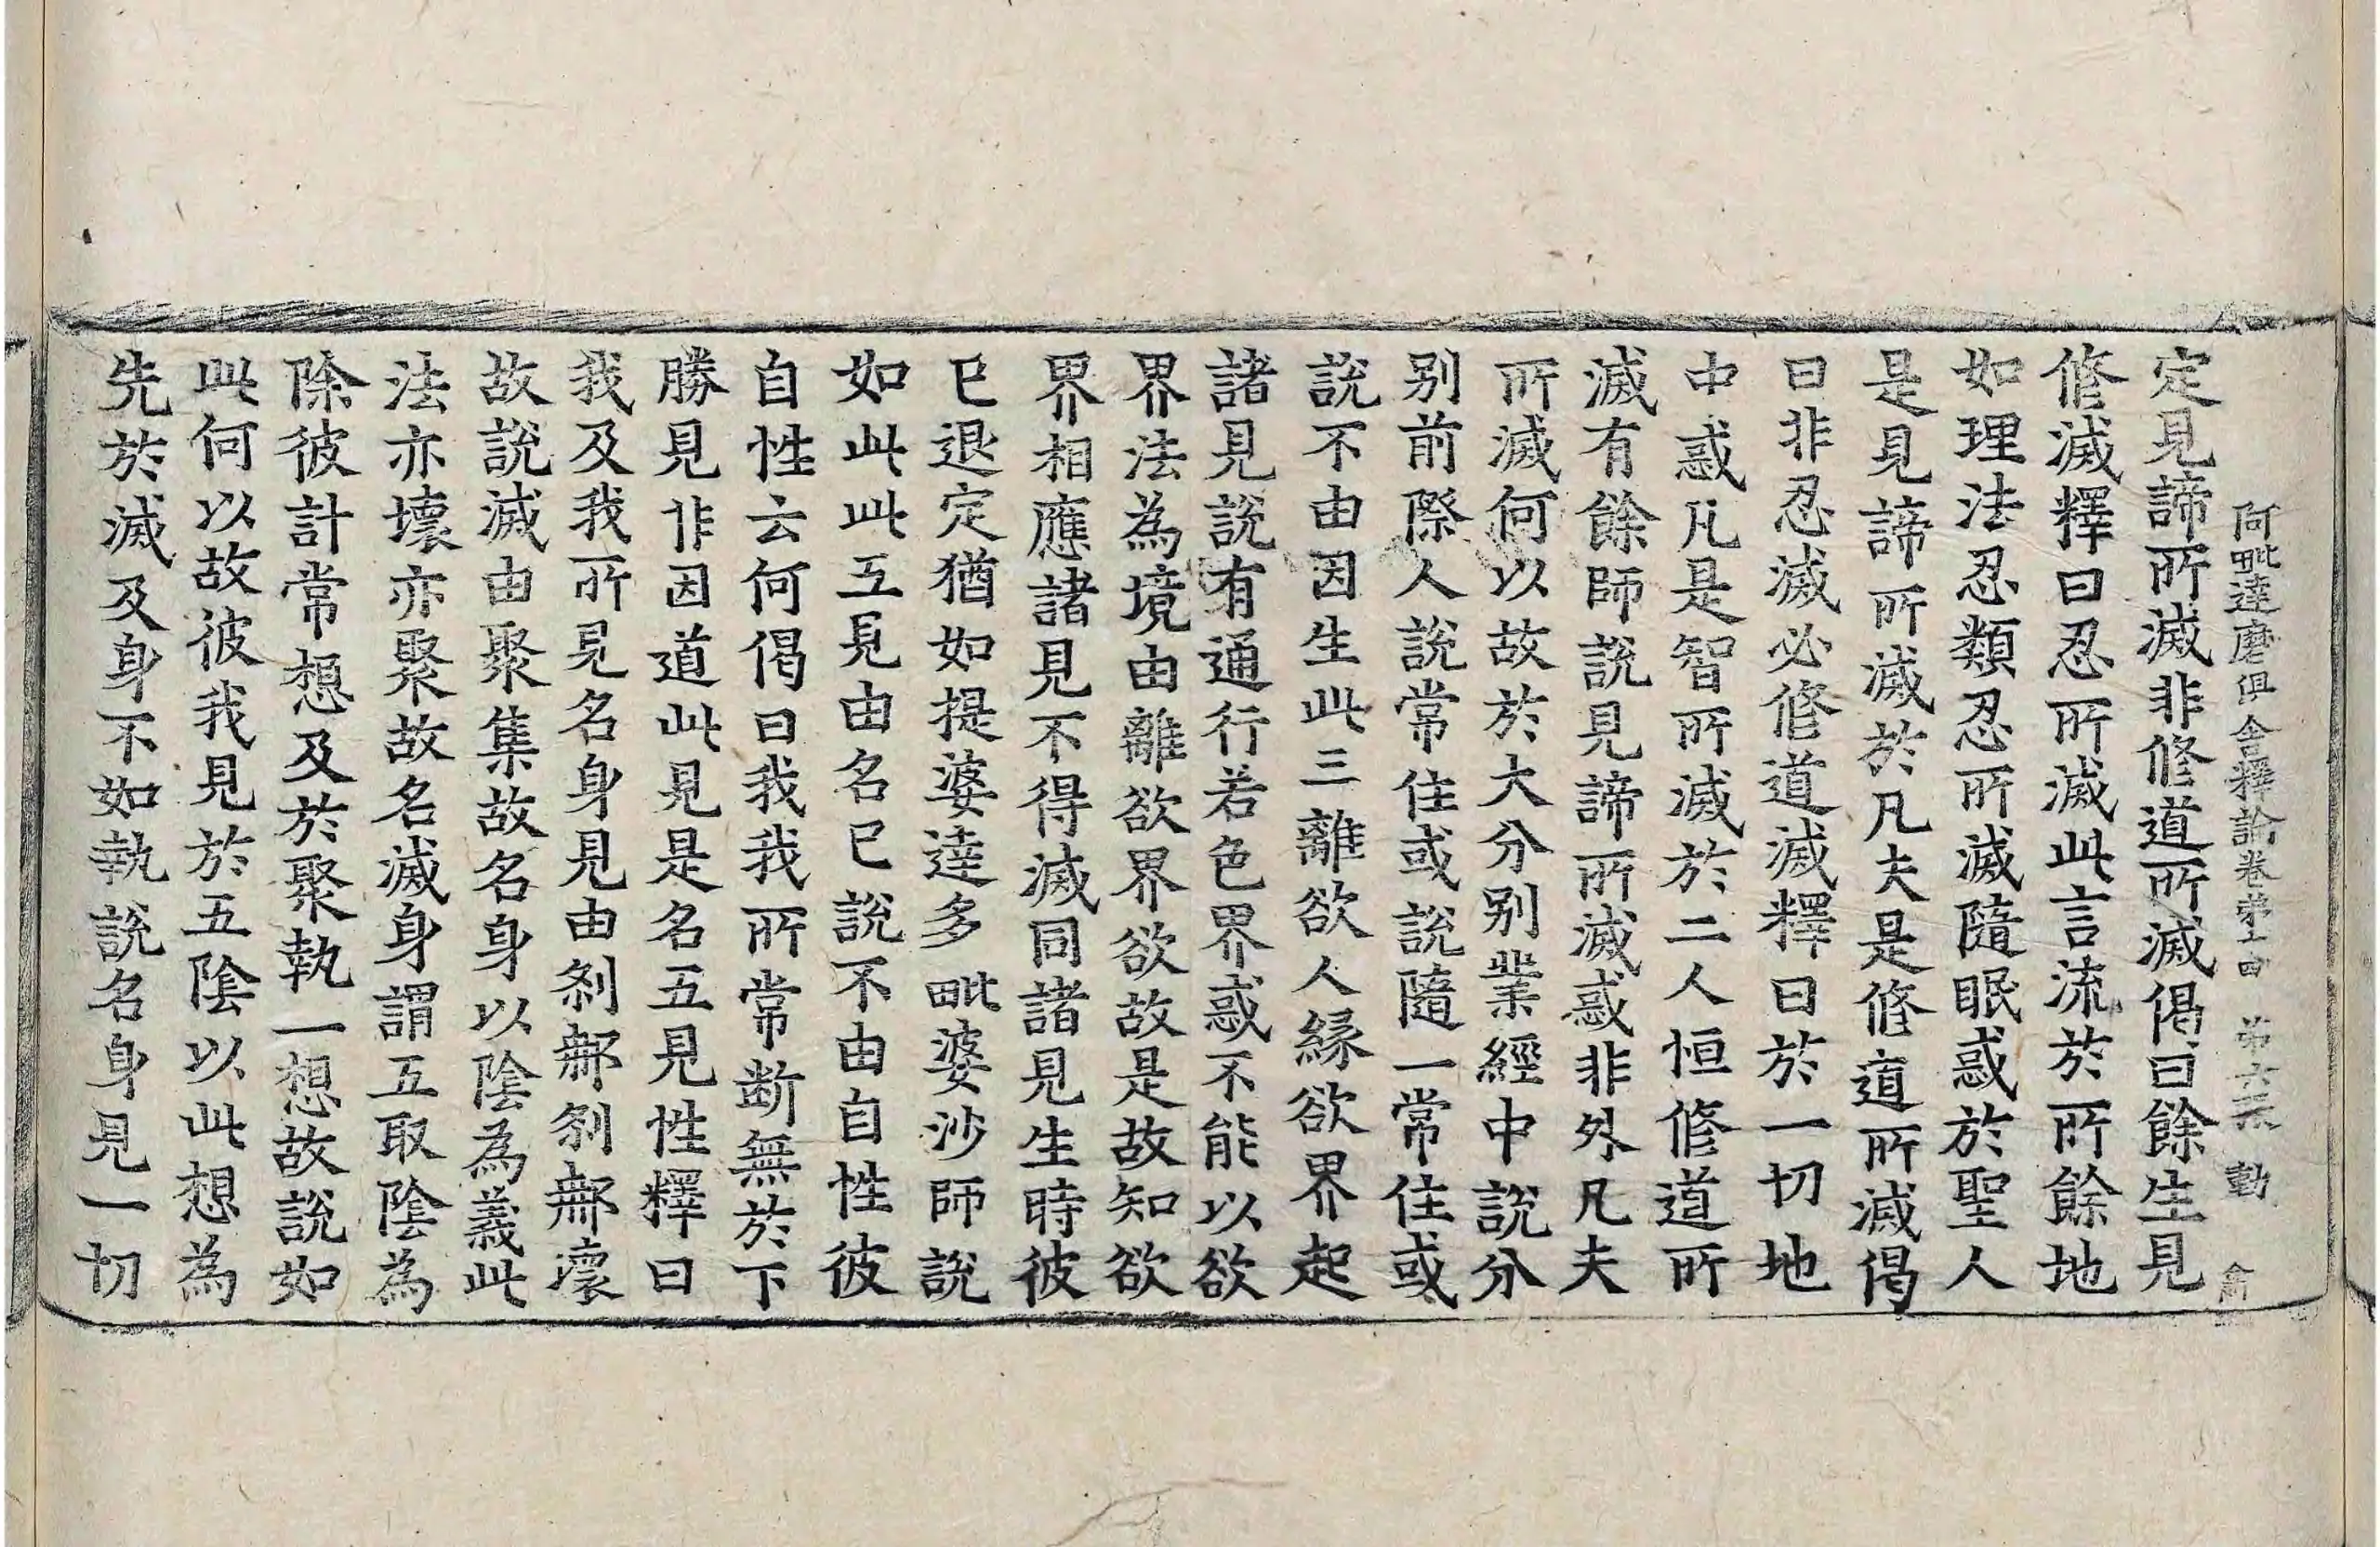 阿毗達磨俱舍釋論卷第十四 第六張 動
定見諦所滅非修道所滅偈曰餘生見
修滅釋曰忍所滅此言流於所餘地
如理法忍類忍所滅隨眠惑於聖人
是見諦所滅於凡夫是修道所滅偈
曰非忍滅必修道滅釋曰於一切地
中惑凡是智所滅於二人恒修道所
滅有餘師說見諦所滅惑非外凡夫
所滅何以故於大分別業經中說分
別前際人說常住或說隨一常住或
說不由因生此三離欲人緣欲界起
諸見說有通行若色界惑不能以欲
界法為境由離欲界欲故是故知欲
界相應諸見不得滅同諸見生時彼
已退定猶如提婆達多毗婆沙師說
如此此五見由名已說不由自性彼
自性云何偈曰我我所常斷無於下
勝見非因道此見是名五見性釋曰
我及我所見名身見由剎那剎那壞
故說滅由聚集故名身以陰為義此
法亦壞亦聚故名滅身謂五取陰為
除彼計常想及於聚執一想故說如
此何以故彼我見於五陰以此想為
先於滅及身不如執說名身見一切